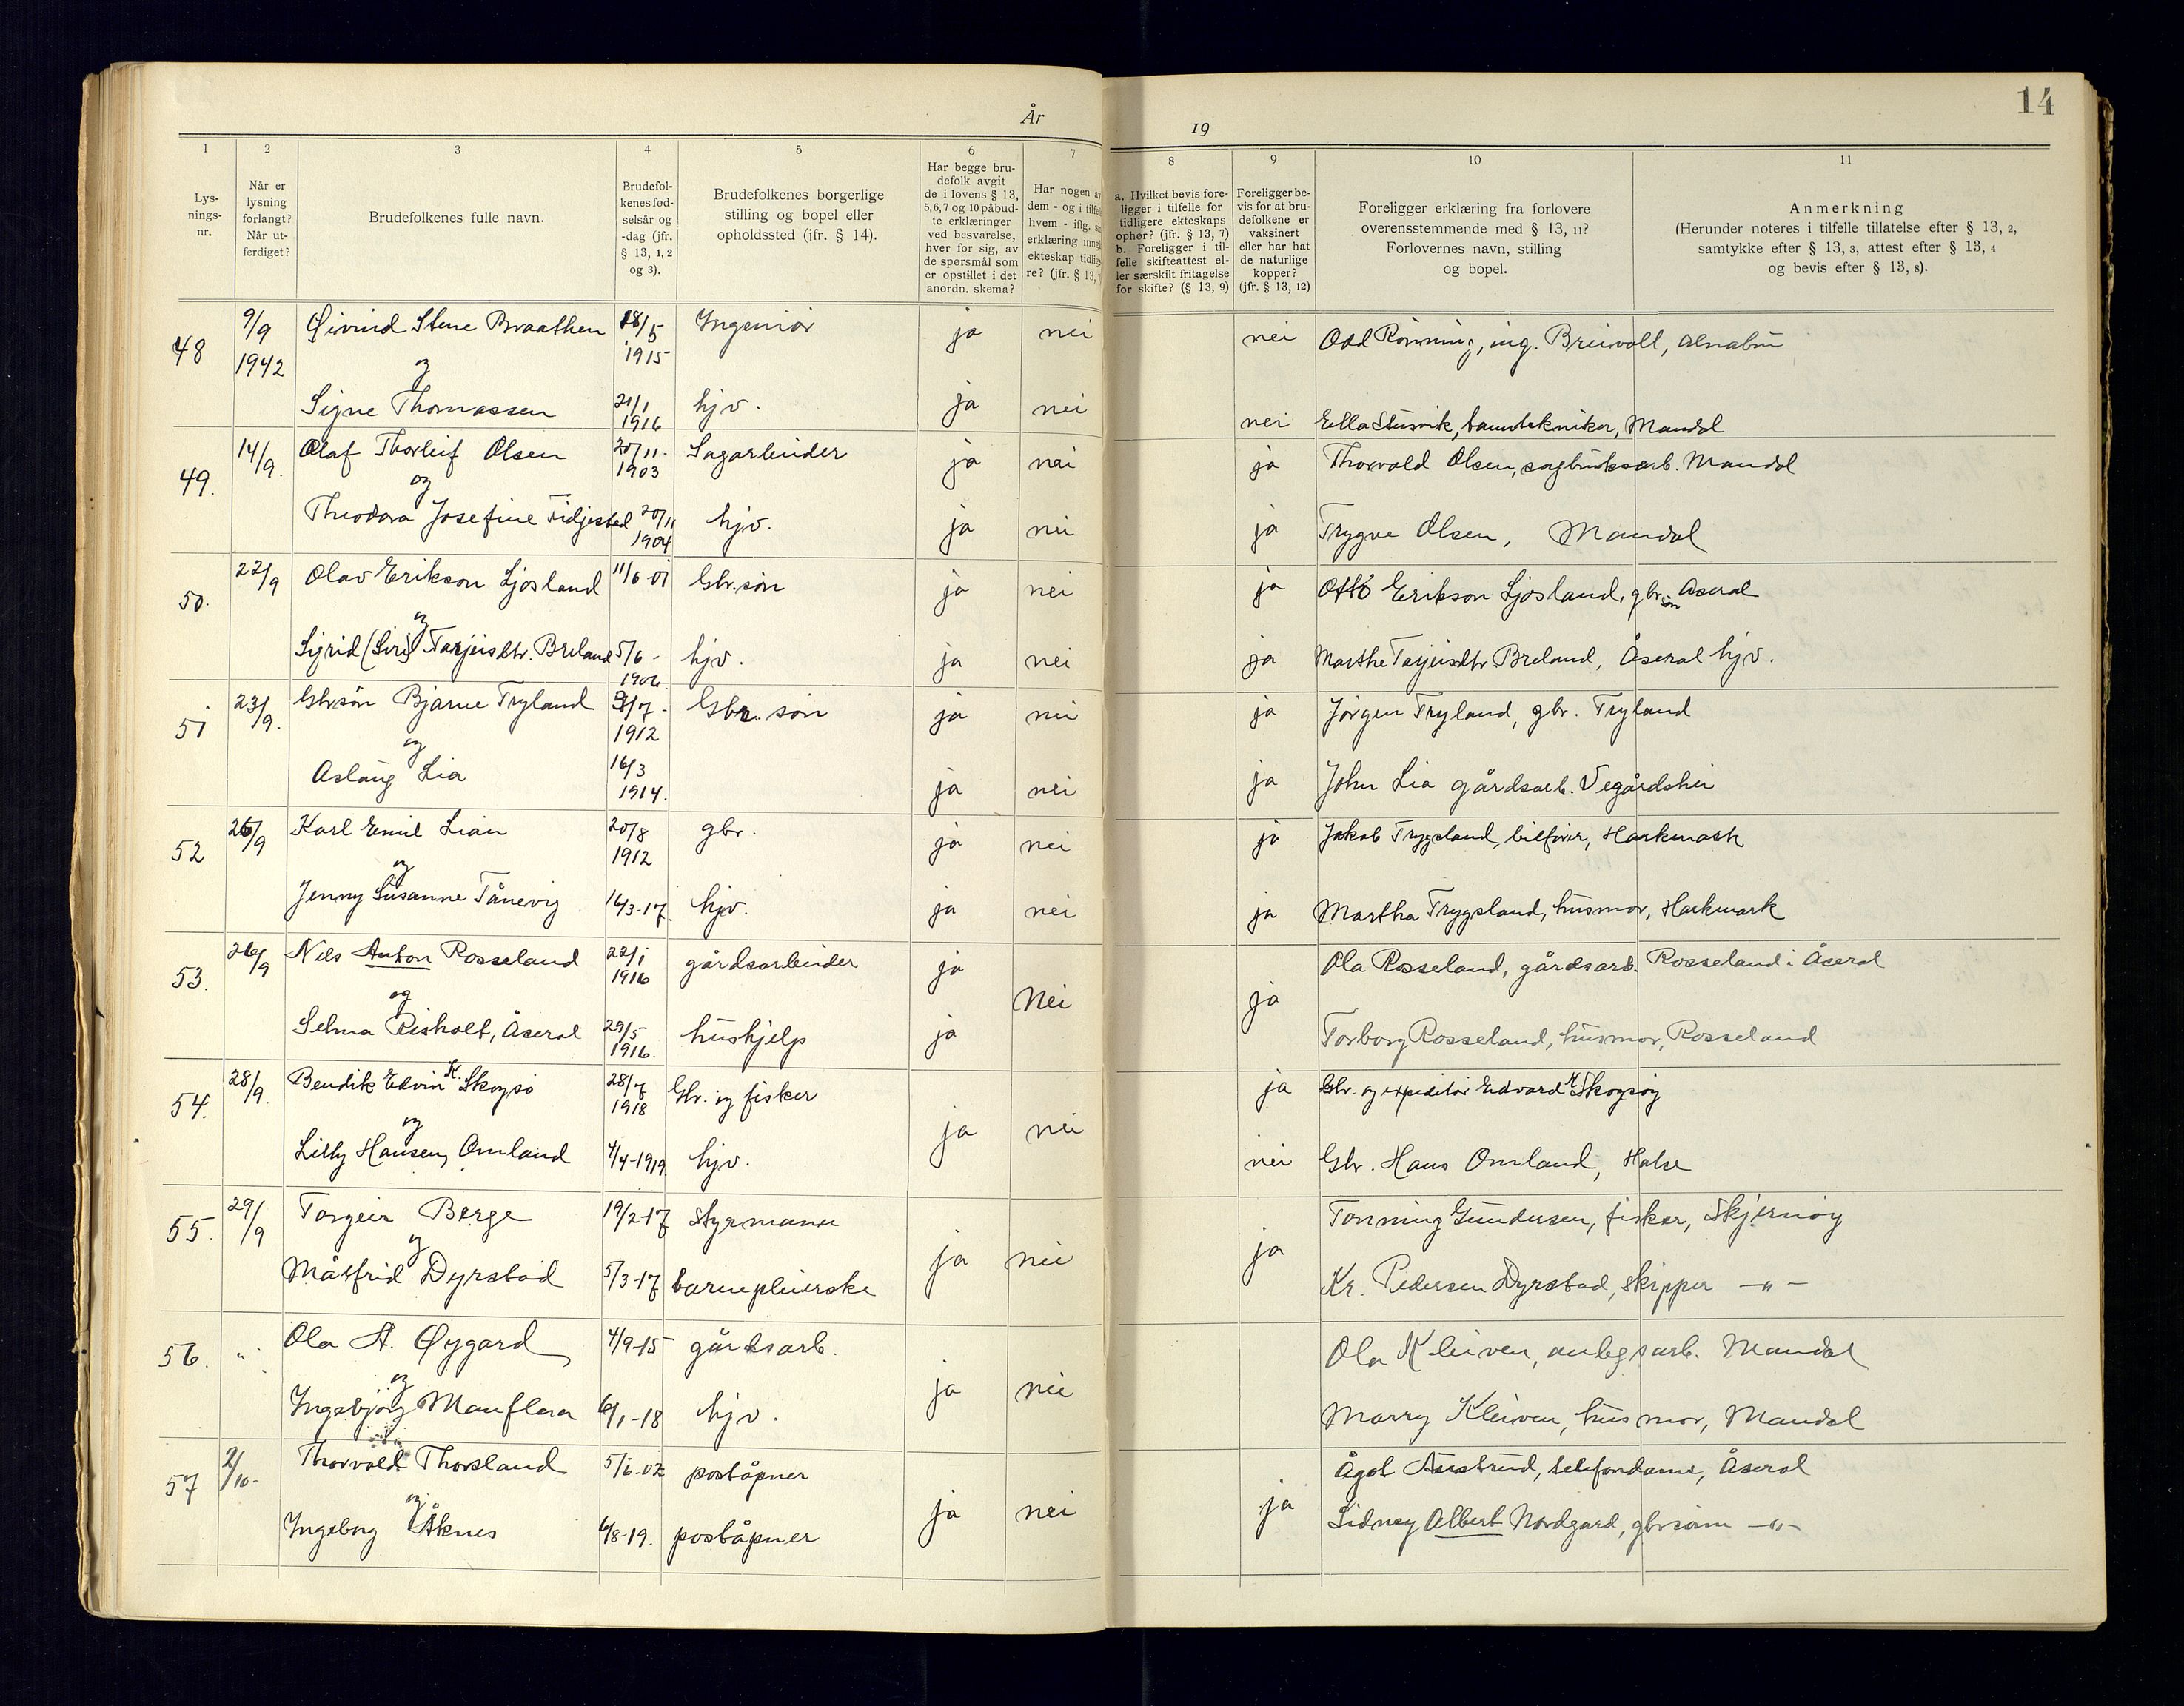 År
19
14
1
2
3
4
5
6
7
8
9
10
11
Lys-
nings-
nr.
Når er
lysning
forlangt?
Når ut-
ferdiget?
Brudefolkenes fulle navn.
Brudefol-
kenes fød-
selsår og
-dag (jfr.
§ 13, 1, 2
og 3).
Brudefolkenes borgerlige
stilling og bopel eller
opholdssted (jfr. § 14).
Har begge bru-
defolk avgit
de i lovens § 13,
5,6, 7 og 10 påbud-
te erklæringer
ved besvarelse,
hver for sig, av
de spørsmål som
er opstillet i det
anordn. skema?
Har nogen av
dem - og i tilfe
hvem - iflg. s
erklæring inng
ekteskap tidlig
re? (jfr. § 13,
a. Hvilket bevis fore-
ligger i tilfelle for
tidligere ekteskaps
ophør? (jfr. § 13, 7)
b. Foreligger i til-
felle skifteattest el-
ler særskilt fritagelse
for skifte? (§ 13, 9)
Foreligger be-
vis for at bru-
defolkene er
vaksinert
eller har hat
de naturlige
kopper?
(jfr. § 13, 12)
Foreligger erklæring fra forlovere
overensstemmende med § 13, 11?
Forlovernes navn, stilling
og bopel.
Anmerkning
(Herunder noteres i tilfelle tillatelse efter § 13, 2,
samtykke efter § 13, 3, attest efter § 13, 4
og bevis efter § 13, 8).
48 9/9 1942 Øivind Stene Braathen 18/5 1915 Ingeniør ja nei nei Odd Rönning, ing. Breivoll, Alnabru
og
Signe Thomassen 21/1 1916 hjv. ja nei nei Ella Stusvik, tanntekniker, Mandal
49. 14/9. Olaf Thorleif Olsen 20/11. 1903 Sagarbeider ja nei ja Thorvald Olsen, sagbruksarb. Mandal
og
Theodora Josefine Fidjestad 20/11 1904 hjv. ja nei ja Trygve Olsen, Mandal
50. 22/9 Olav Erikson Ljosland 11/6-01 Gbr.søn ja nei ja Otto Erikson Ljosland, gbr.søn Åseral
og
Sigrid (Siri) Tarjeisdtr. Breland 5/6 - 1906. hjv. ja nei ja Marthe Tarjeisdtr Breland, Åseral hjv.
51 23/9. Gbrsøn Bjarne Tryland 3/7 - 1912 Gbr. søn ja nei ja Jørgen Tryland, gbr. Tryland
og
Aslaug Lia 16/3 1914. ja nei ja John Lia gårdsarb. Vegårdshei
52 26/9 Karl Emil Lian 20/8 1912 gbr. ja nei ja Jakob Trygsland, bilfører, Harkmark
og
Jenny Susanne Tånevig 16/3-17. hjv. ja nei ja Martha Trygsland, husmor, Harkmark
53. 26/9 Nils Anton Rosseland 22/1 1916 gårdsarbeider ja Nei ja Ola Rosseland, gårdsarb. Rosseland i Åseral
og
Selma Risholt, Åseral 29/5 1916. hushjelp ja Torborg Rosseland, husmor, Rosseland
54. 28/9. Bendik Edvin K. Skogsø 28/7 1918 Gbr. og fisker ja nei ja Gbr. og expeditør Edvard Skogsøy
og
Lilly Hansen, Omland 4/4-1919. hjv. nei Gbr. Hans Omland, Halse
55. 29/9 Torgeir Berge 19/2-17 styrmann ja nei ja Tonning Gundersen, fisker, Skjernøy
og
Målfrid Dyrstad 5/3-17 barnepleierske Kr. Pedersen Dyrstad, skipper —"—
56. " Ola A. Øygard 4/9-15 gårdsarb. ja nei Ola Kleiven, anlegsarb. Mandal
og
Ingebjørg Manflaa 6/1-18 hjv. Marry Kleiven, husmor, Mandal
57 2/10- Thorvald Thorsland 5/6.02 poståpner ja nei ja Ågot Austrud, telefondame, Åseral
og
Ingeborg Åknes 6/8-19. poståpner Sidney Albert Nordgard, gbrsønn —"—